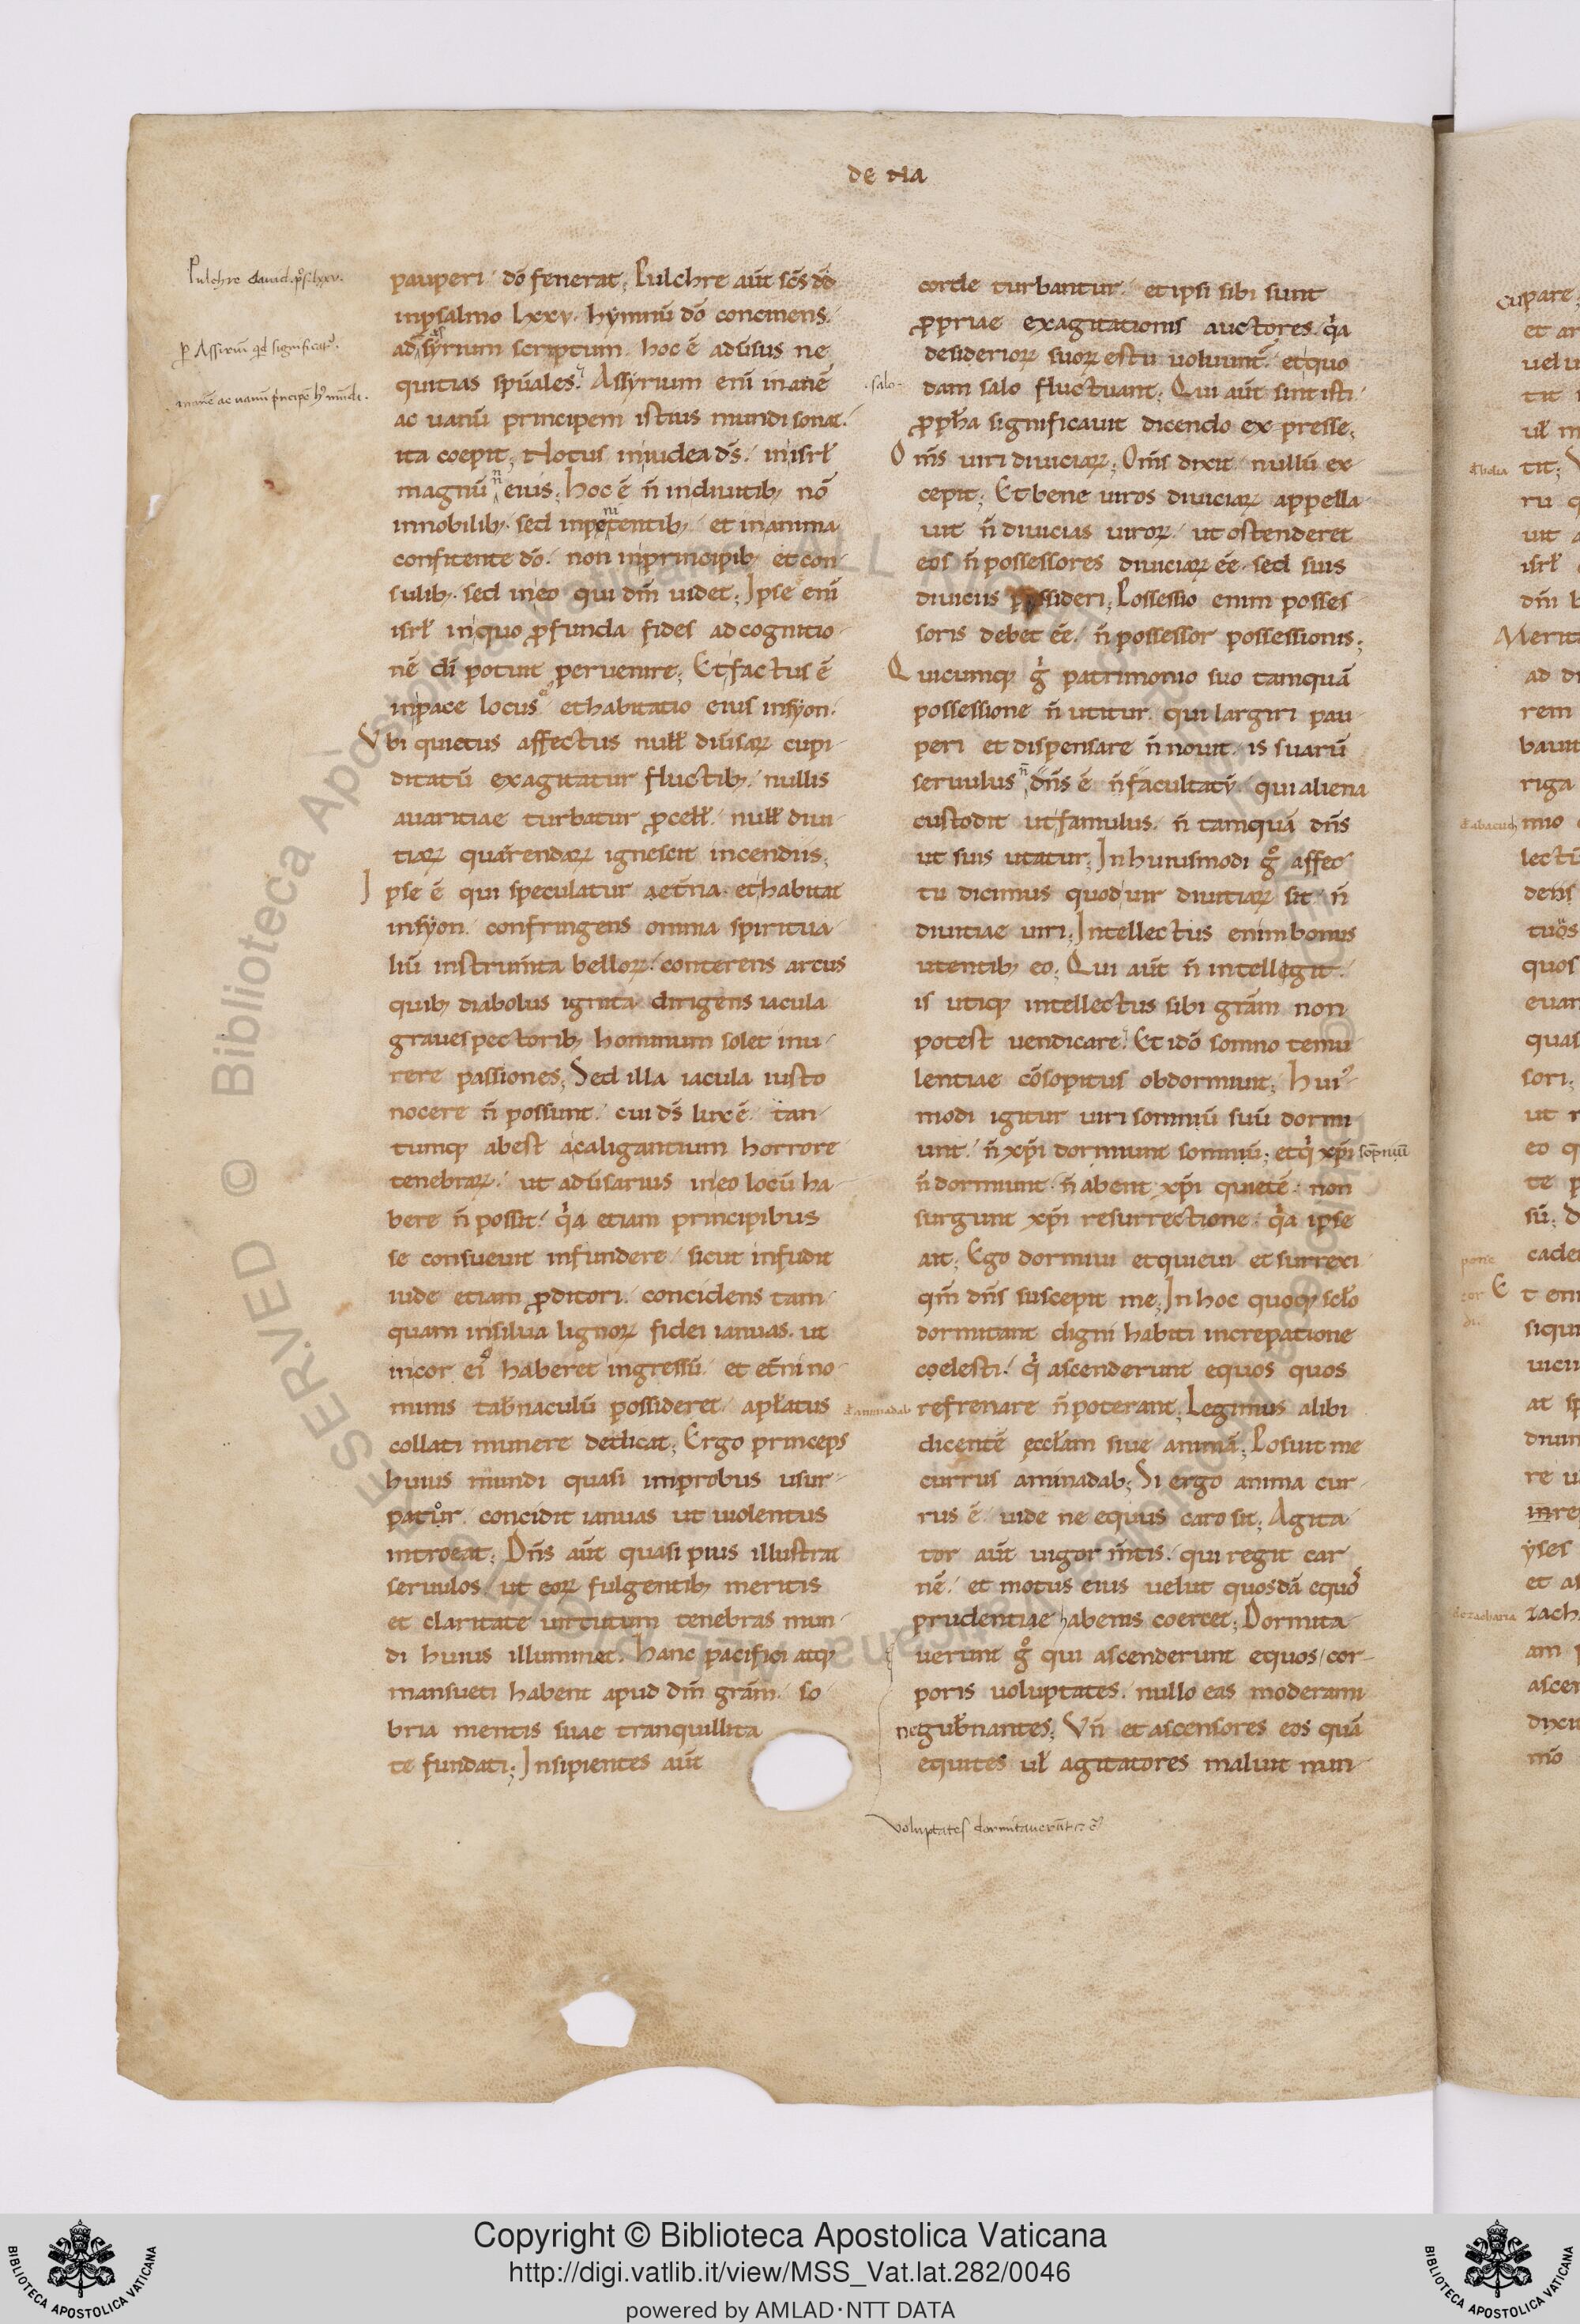 de na
Pulchre dauid. ps. lxxv.
pauperi dō fenerat; Pulchre aūt scs dd
inpsalmo lxxv. hymnū dō concinens.
adassyrium scriptum. hoc ē aduersus ne
quitias spūales. Assyrium enī inanē
ac uanū principem istius mundi sonat.
ita coepit; Notus iniudea ds. inisrł
magnū n̄ eius; hoc ē n̄ indiuitib; nō
innobilib; sed inpotentib; et inanima
confitente dō. non inprincipib; et con
sulib; sed ineo qui dm̄ uidet; Ipse enī
isrł inquo ꝓfunda fides adcognitio
nē dī potuit peruenire; Et factus ē
inpace locus ethabitatio eius insyon.
Vbi quietus affectus nulł diūsaꝝ cupi
ditatū exagitatur fluctib; nullis
auaritiae turbatur ꝓcelł. nulł diui
tiaꝝ quærendaꝝ ignescit incendiis;
Ipse ē qui speculatur aet̄na. ethabitat
insyon. confringens omnia spiritua
liū instrum̄ta belloꝝ. conterens arcus
quib; diabolus ignita dirigens iacula
graues pectorib; hominum solet inu
rere passiones; Sed illa iacula iusto
nocere n̄ possunt. cui ds̄ lux ē. tan
tumq; abest acaligantium horrore
tenebraꝝ. ut adūsarius ineo locū ha
bere n̄ possit. q̇a etiam principibus
se consueuit infundere. sicut infudit
iude etiam ꝓditori. concidens tam
quam insilua lignoꝝ fidei ianuas. ut
incor ei haberet ingressū. et et̄ni no
minis tab̄naculū possideret. apłatus
collati munere dedicat; Ergo princeps
huius mundi quasi improbus usur
pator concidit ianuas ut uiolentus
introeat; Dn̄s aūt quasi pius illustrat
seruulos. ut eoꝝ fulgentib; meritis
et claritate uirtutum tenebras mun
di huius illuminet. hanc pacifici atq;
mansueti habent apud dm̄ grām. so
bria mentis suae tranquillita
te fundati; Insipientes aūt
corde turbantur. et ipsi sibi sunt
ꝓpriae exagitationis auctores. q̇a
desiderioꝝ suoꝝ estu uoluunt̄. etquo
·salo· dam salo fluctuant; Qui aūt sint isti
ꝓpħa significauit dicendo expresse;
Om̄s uiri diuiciaꝝ; Om̄s dixit. nullū ex
cepit; Et bene uiros diuiciaꝝ appella
uit n̄ diuicias uiroꝝ. ut ostenderet
eos n̄ possessores diuiciaꝝ ēe. sed suis
diuiciis possideri; Possessio enim posses
soris debet ēe. n̄ possessor possessionis;
Quicumq; ġ patrimonio suo tamquā
possessione n̄ utitur. qui largiri pau
peri et dispensare n̄ nouit. is suarū
seruulus n̄ dn̄s ē n̄ facultatū. qui aliena
custodit ut famulus. n̄ tamquā dn̄s
ut suis utatur; In huiusmodi gͦ affec
tu dicimus quod uir diuitiaꝝ sit. n̄
diuitiae uiri; Intellectus enim bonus
utentib; eo; Qui aūt n̄ intellegit.
is utiq; intellectus sibi grām non
potest uendicare. Et idō somno temu
lentiae cōsopitus obdormiunt; Hui
modi igitur uiri somniū suū dormi
unt. n̄ xp̄i dormiunt somniū; etq̇ xp̄i
n̄ dormiunt. n̄ abent xp̄i quietē. non
surgunt xp̄i resurrectione. q̇a ipse
ait; Ego dormiui etquieui et surrexi
qm̄ dn̄s suscepit me; In hoc quoq; scło
dormitant digni habiti increpatione
coelesti. q̇ ascenderunt equos quos
refrenare n̄ poterant; Legimus alibi
dicentē eccłam siue animā; Posuit me
currus aminadab; Si ergo anima cur
rus ē. uide ne equus caro sit; Agita
tor aūt uigor m̄tis. qui regit car
nē. et motus eius uelut quosdā equos
prudentiae habenis coercet; Dormita
uerunt gͦ qui ascenderunt equos cor
poris uoluptates. nullo eas moderami
ne gub̄nantes; Vn̄ et ascensores eos quā
equites uł agitatores maluit nun
voluptates dormitauerūt
Copyright © Biblioteca Apostolica Vaticana
http://digi.vatlib.it/view/MSS_Vat.lat.282/0046
powered by AMLAD·NTT DATA
BIBLIOTECA APOSTOLICA VATICANA
BIBLIOTECA APOSTOLICA VATICANA